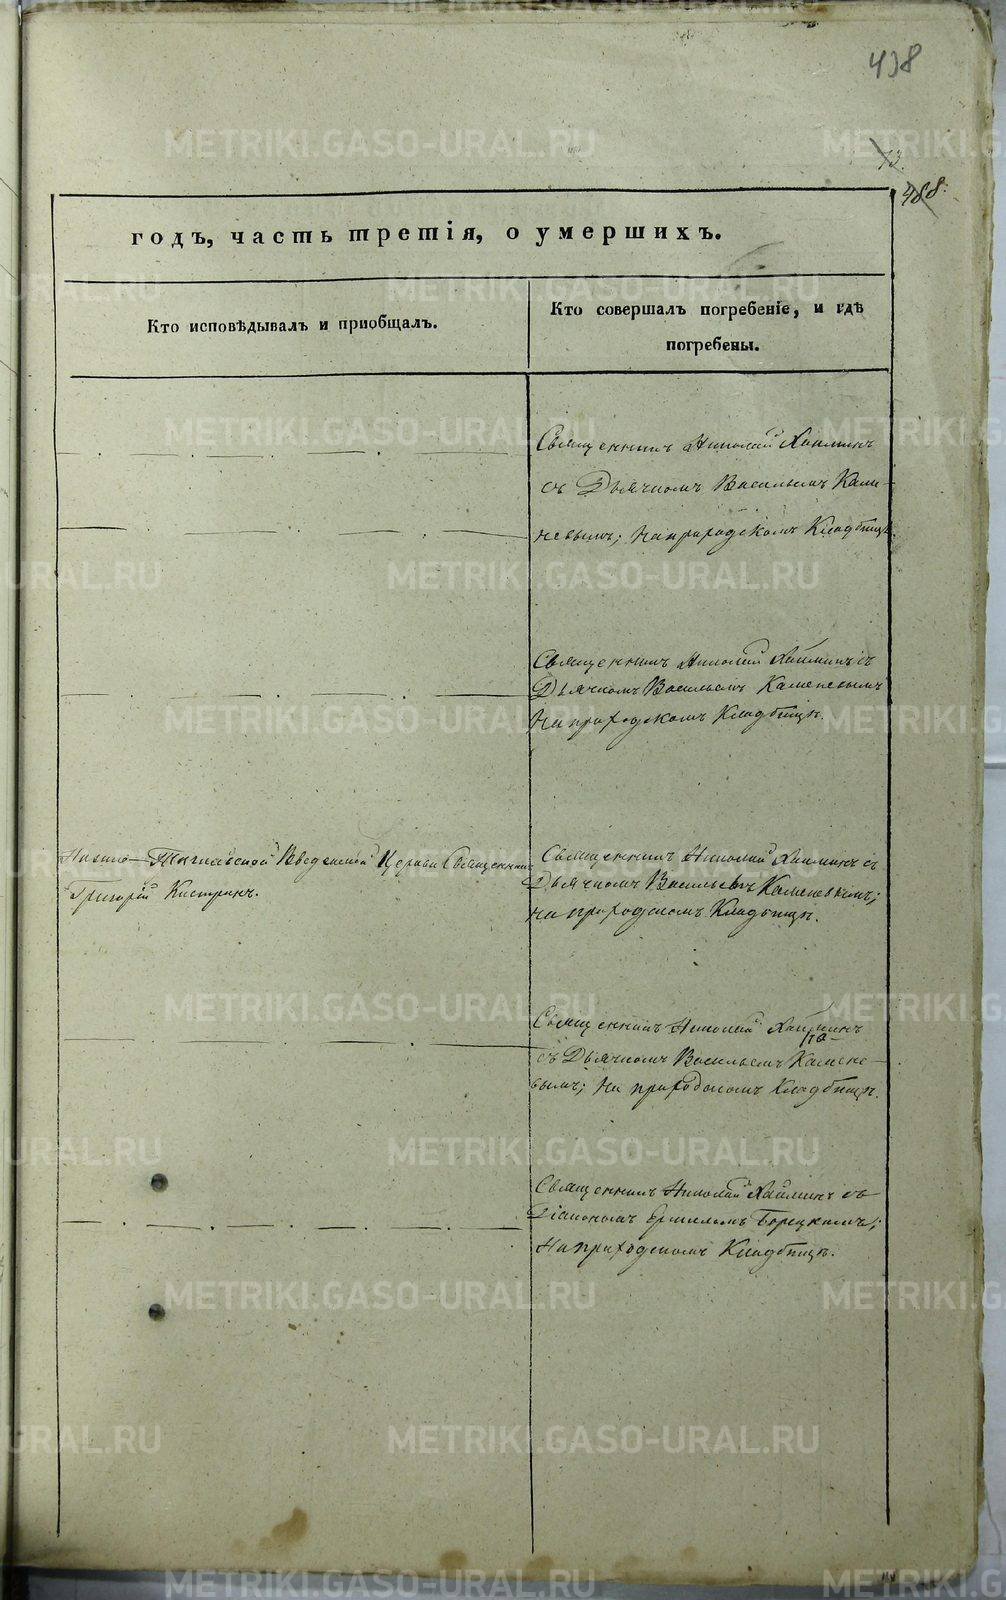 438
73.
488.
годъ, часть третія, о умершихъ.
Кто исповѣдывалъ и пріобщалъ.
Кто совершалъ погребеніе, и гдѣ
погребены.
Священникъ Николай Хаиминъ
съ Дьячкомъ Васильемъ Каме-
невымъ; На приходскомъ Кладбищѣ.
Священникъ Николай Хаиминъ съ
Дьячкомъ Васильемъ Каменевымъ
На приходскомъ Кладбищѣ.
Нижно-Тагильской Введенской Церкви Священникъ
Григорій Кистринъ.
Священникъ Николай Хаиминъ съ
Дьячкомъ Васильемъ Каменевымъ;
на приходскомъ Кладбищѣ.
Священникъ Николай Хаиминъ
съ Дьячкомъ Васильемъ Камене-
вымъ; На приходскомъ Кладбищѣ.
Священникъ Николай Хаиминъ съ
Діакономъ Ермиломъ Борецкимъ;
На приходскомъ Кладбищѣ.
METRIKI.GASO-URAL.RU